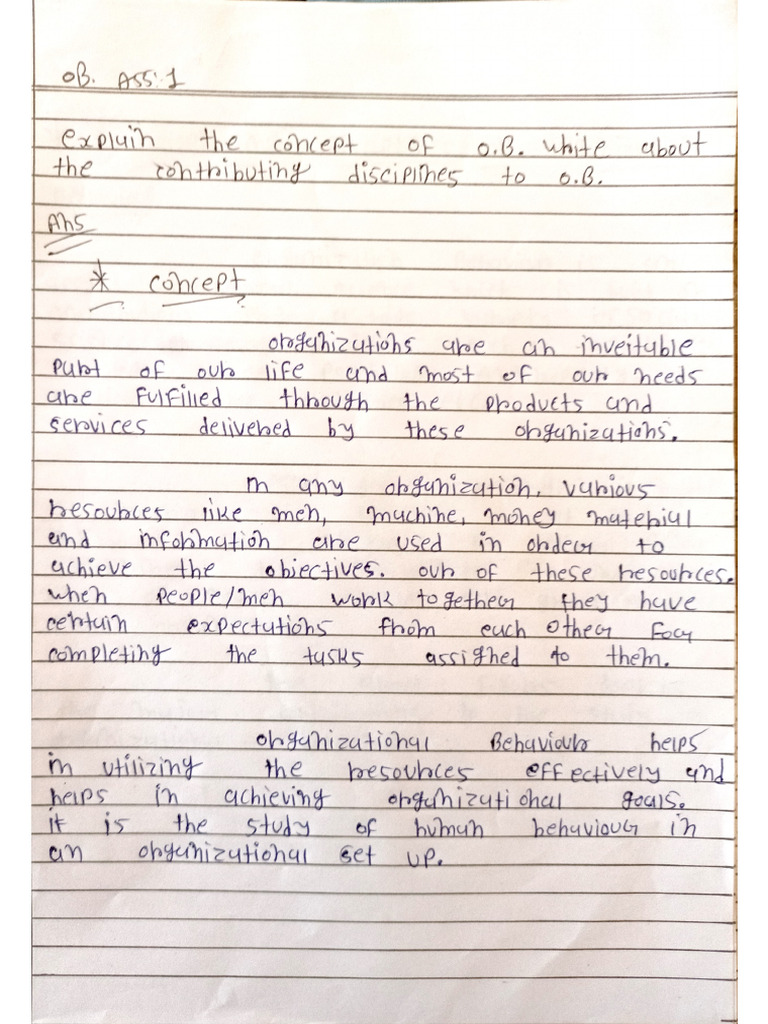 OB. ASS:1
explain the concept of O.B. write about
the contributing disciplines to O.B.
Ans
* concept
organizations are an inveitable
part of our life and most of our needs
are fulfilled through the products and
services delivered by these organizations.
In any organization, various
resources like men, machine, money material
and information are used in order to
achieve the objectives. our of these resources.
when people/men work together they have
certain expectations from each other for
completing the tasks assigned to them.
organizational Behaviour helps
in utilizing the resources effectively and
helps in achieving organizational goals.
it is the study of human behaviour in
an organizational set up.